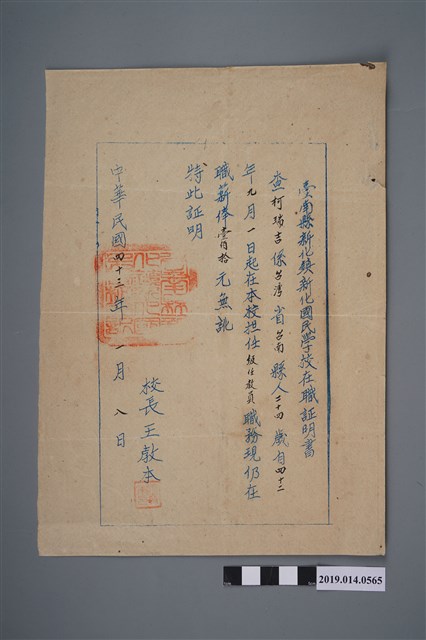 臺南縣新化鎮新化國民學校在職証明書
查柯瑞吉係台湾省台南縣人二十四歲自四十二
年九月一日起在本校担任級任教員職務現仍在
職薪俸壹百拾元無訛
特此証明
中華民國四十三年一月八日
校長王敦本
2019.014.0565